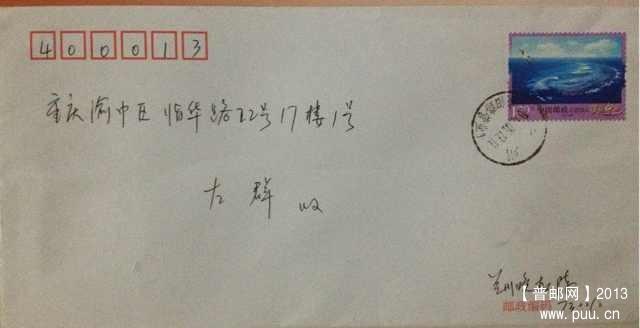 400013
重庆渝中区怡华路22号17楼1号
左群 收
中国邮政
邮政编码
【普邮网】2013
www.puu.cn